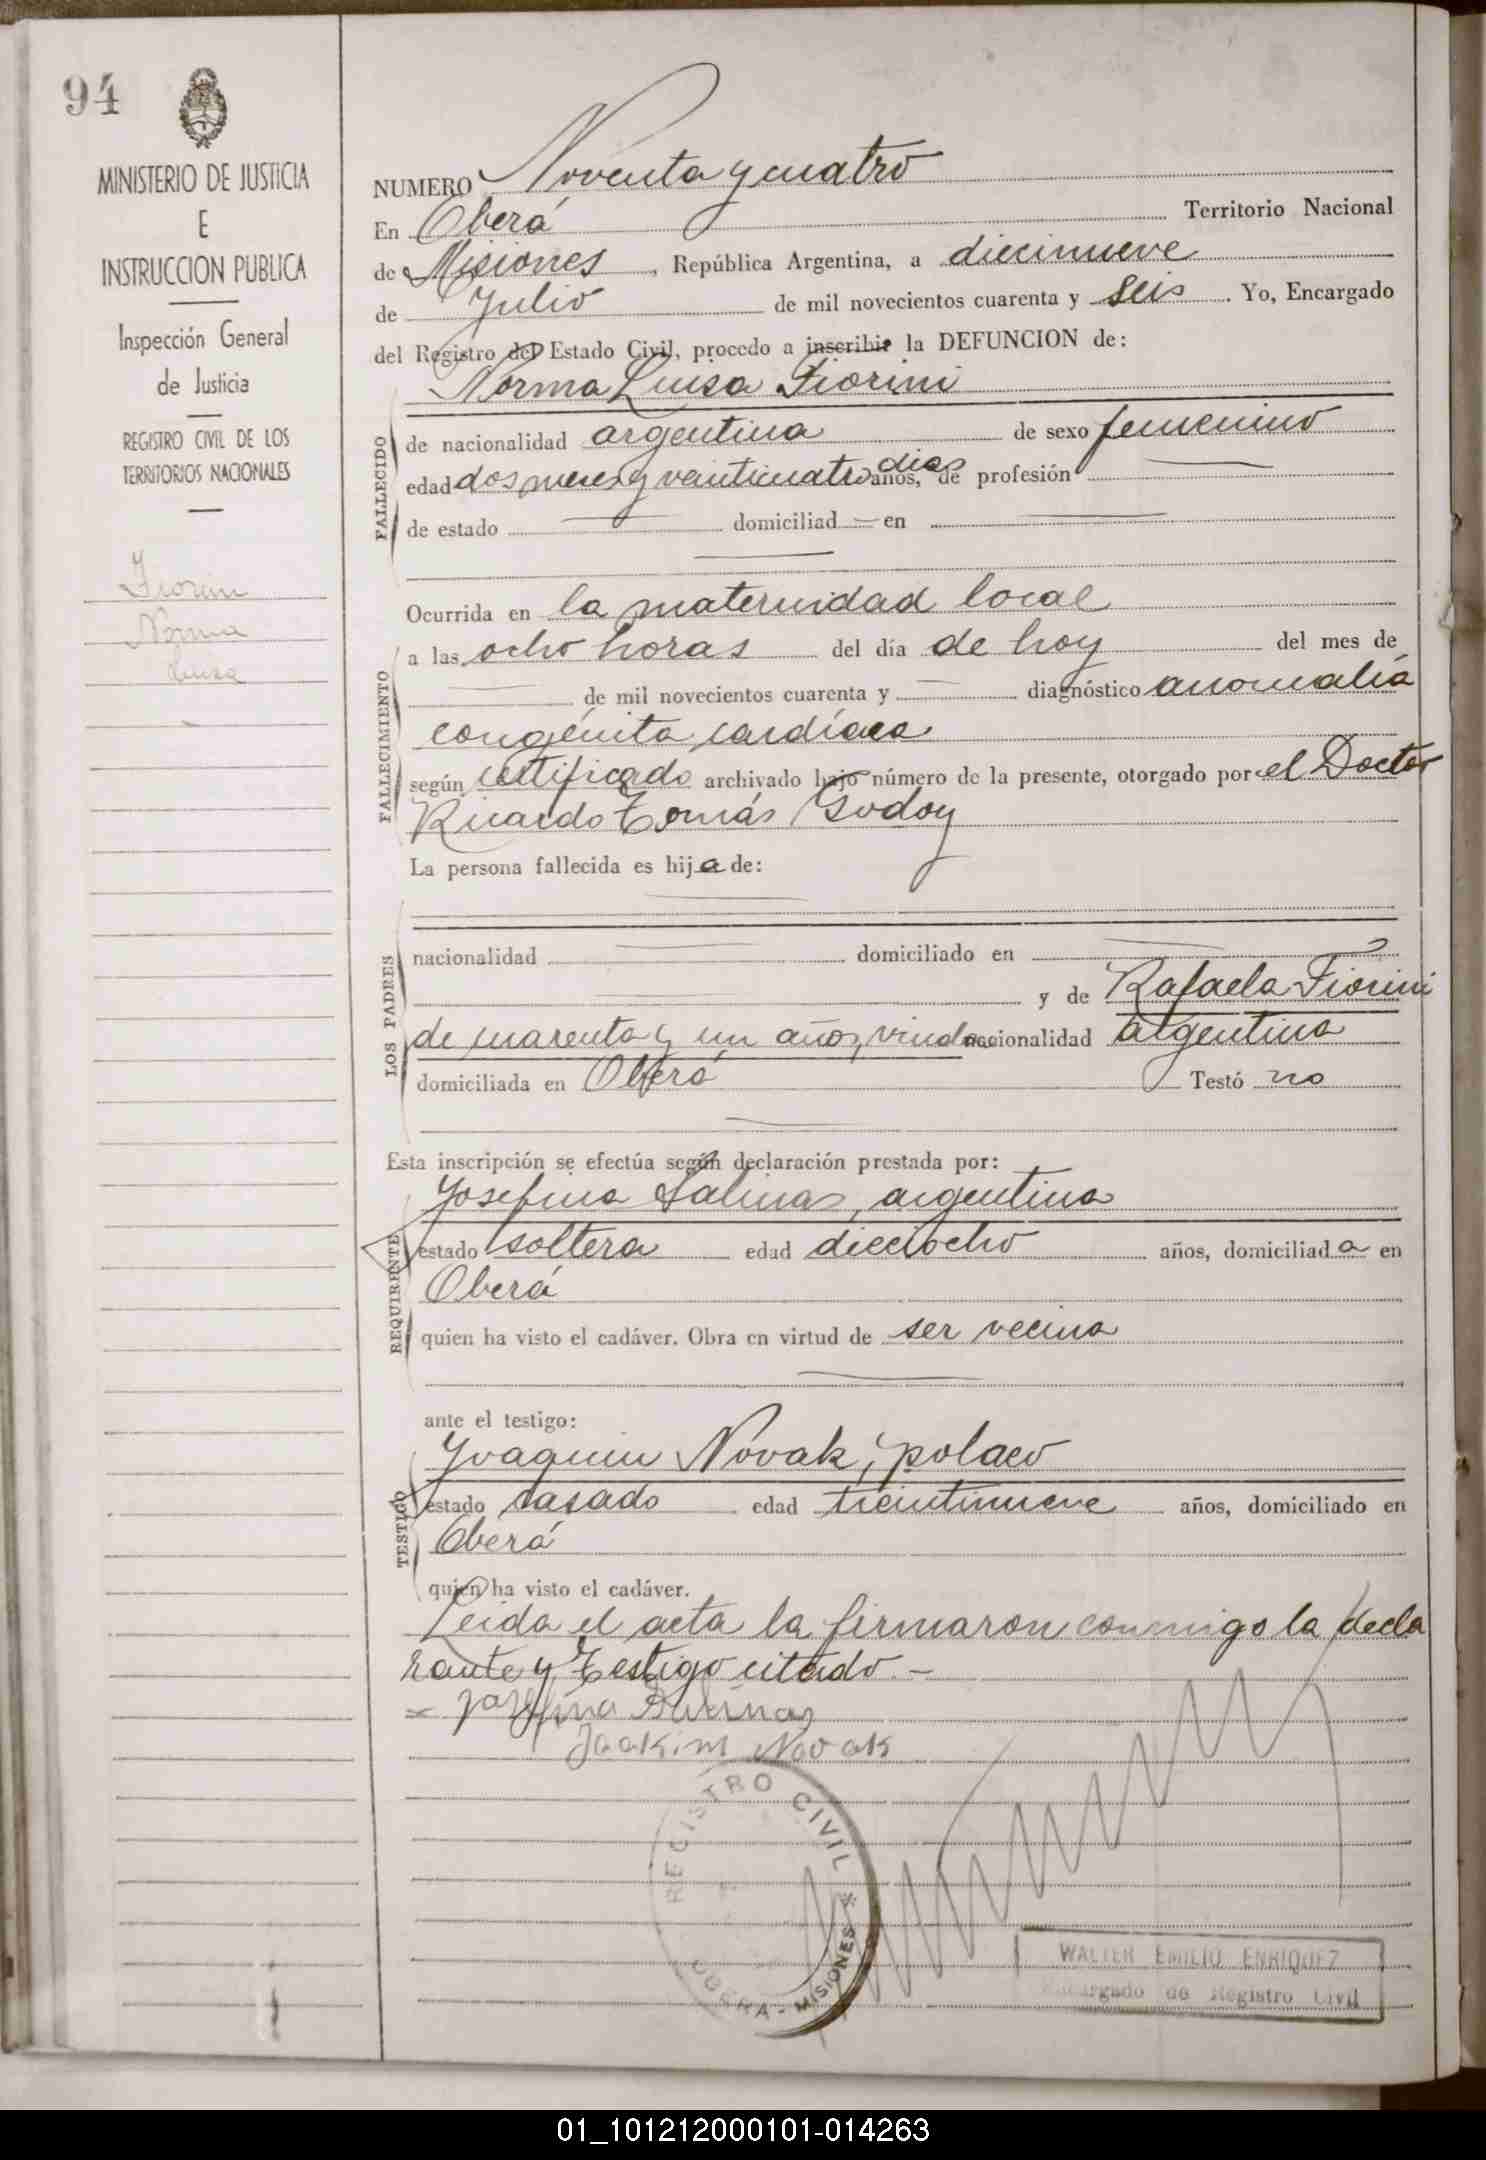 94
MINISTERIO DE JUSTICIA
E
INSTRUCCION PUBLICA
Inspección General
de Justicia
REGISTRO CIVIL DE LOS
TERRITORIOS NACIONALES
Fiorini
Norma
Luisa
NUMERO Noventa y cuatro
En Oberá Territorio Nacional
de Misiones, República Argentina, a diecinueve
de Julio de mil novecientos cuarenta y seis. Yo, Encargado
del Registro del Estado Civil, procedo a inscribir la DEFUNCION de:
Norma Luisa Fiorini
FALLECIDO
de nacionalidad argentina de sexo femenino
edad dos meses y veinticuatro años, dias de profesión
de estado domiciliad en
FALLECIMIENTO
Ocurrida en la maternidad local
a las ocho horas del día de hoy del mes de
de mil novecientos cuarenta y diagnóstico anomalía
congénita cardíaca
según certificado archivado bajo número de la presente, otorgado por el Doctor
Ricardo Tomás Godoy
La persona fallecida es hija de:
LOS PADRES
nacionalidad domiciliado en
y de Rafaela Fiorini
de cuarenta y un años, viuda nacionalidad argentina
domiciliada en Oberá Testó no
Esta inscripción se efectúa según declaración prestada por:
Josefina Salinas, argentina
REQUIRENTE
estado soltera edad dieciocho años, domiciliada en
Oberá
quien ha visto el cadáver. Obra en virtud de ser vecina
ante el testigo:
Joaquin Novak, polaco
TESTIGO
estado casado edad treintinueve años, domiciliado en
Oberá
quien ha visto el cadáver.
Leida el acta la firmaron conmigo la decla
rante y testigo citado.-
Josefina Salinas
Joakim Novak
REGISTRO CIVIL
OBERA - MISIONES
WALTER EMILIO ENRIQUEZ
Encargado de Registro Civil
01_101212000101-014263